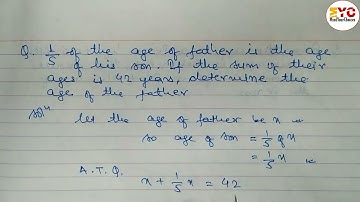 SYC
Q. 1/5 of the age of father is the age
of his son. If the sum of their
ages is 42 years, determine the
age of the father
Solⁿ let the age of father be x
so age of son = 1/5 of x
= 1/5 x
A.T.Q.
x + 1/5 x = 42